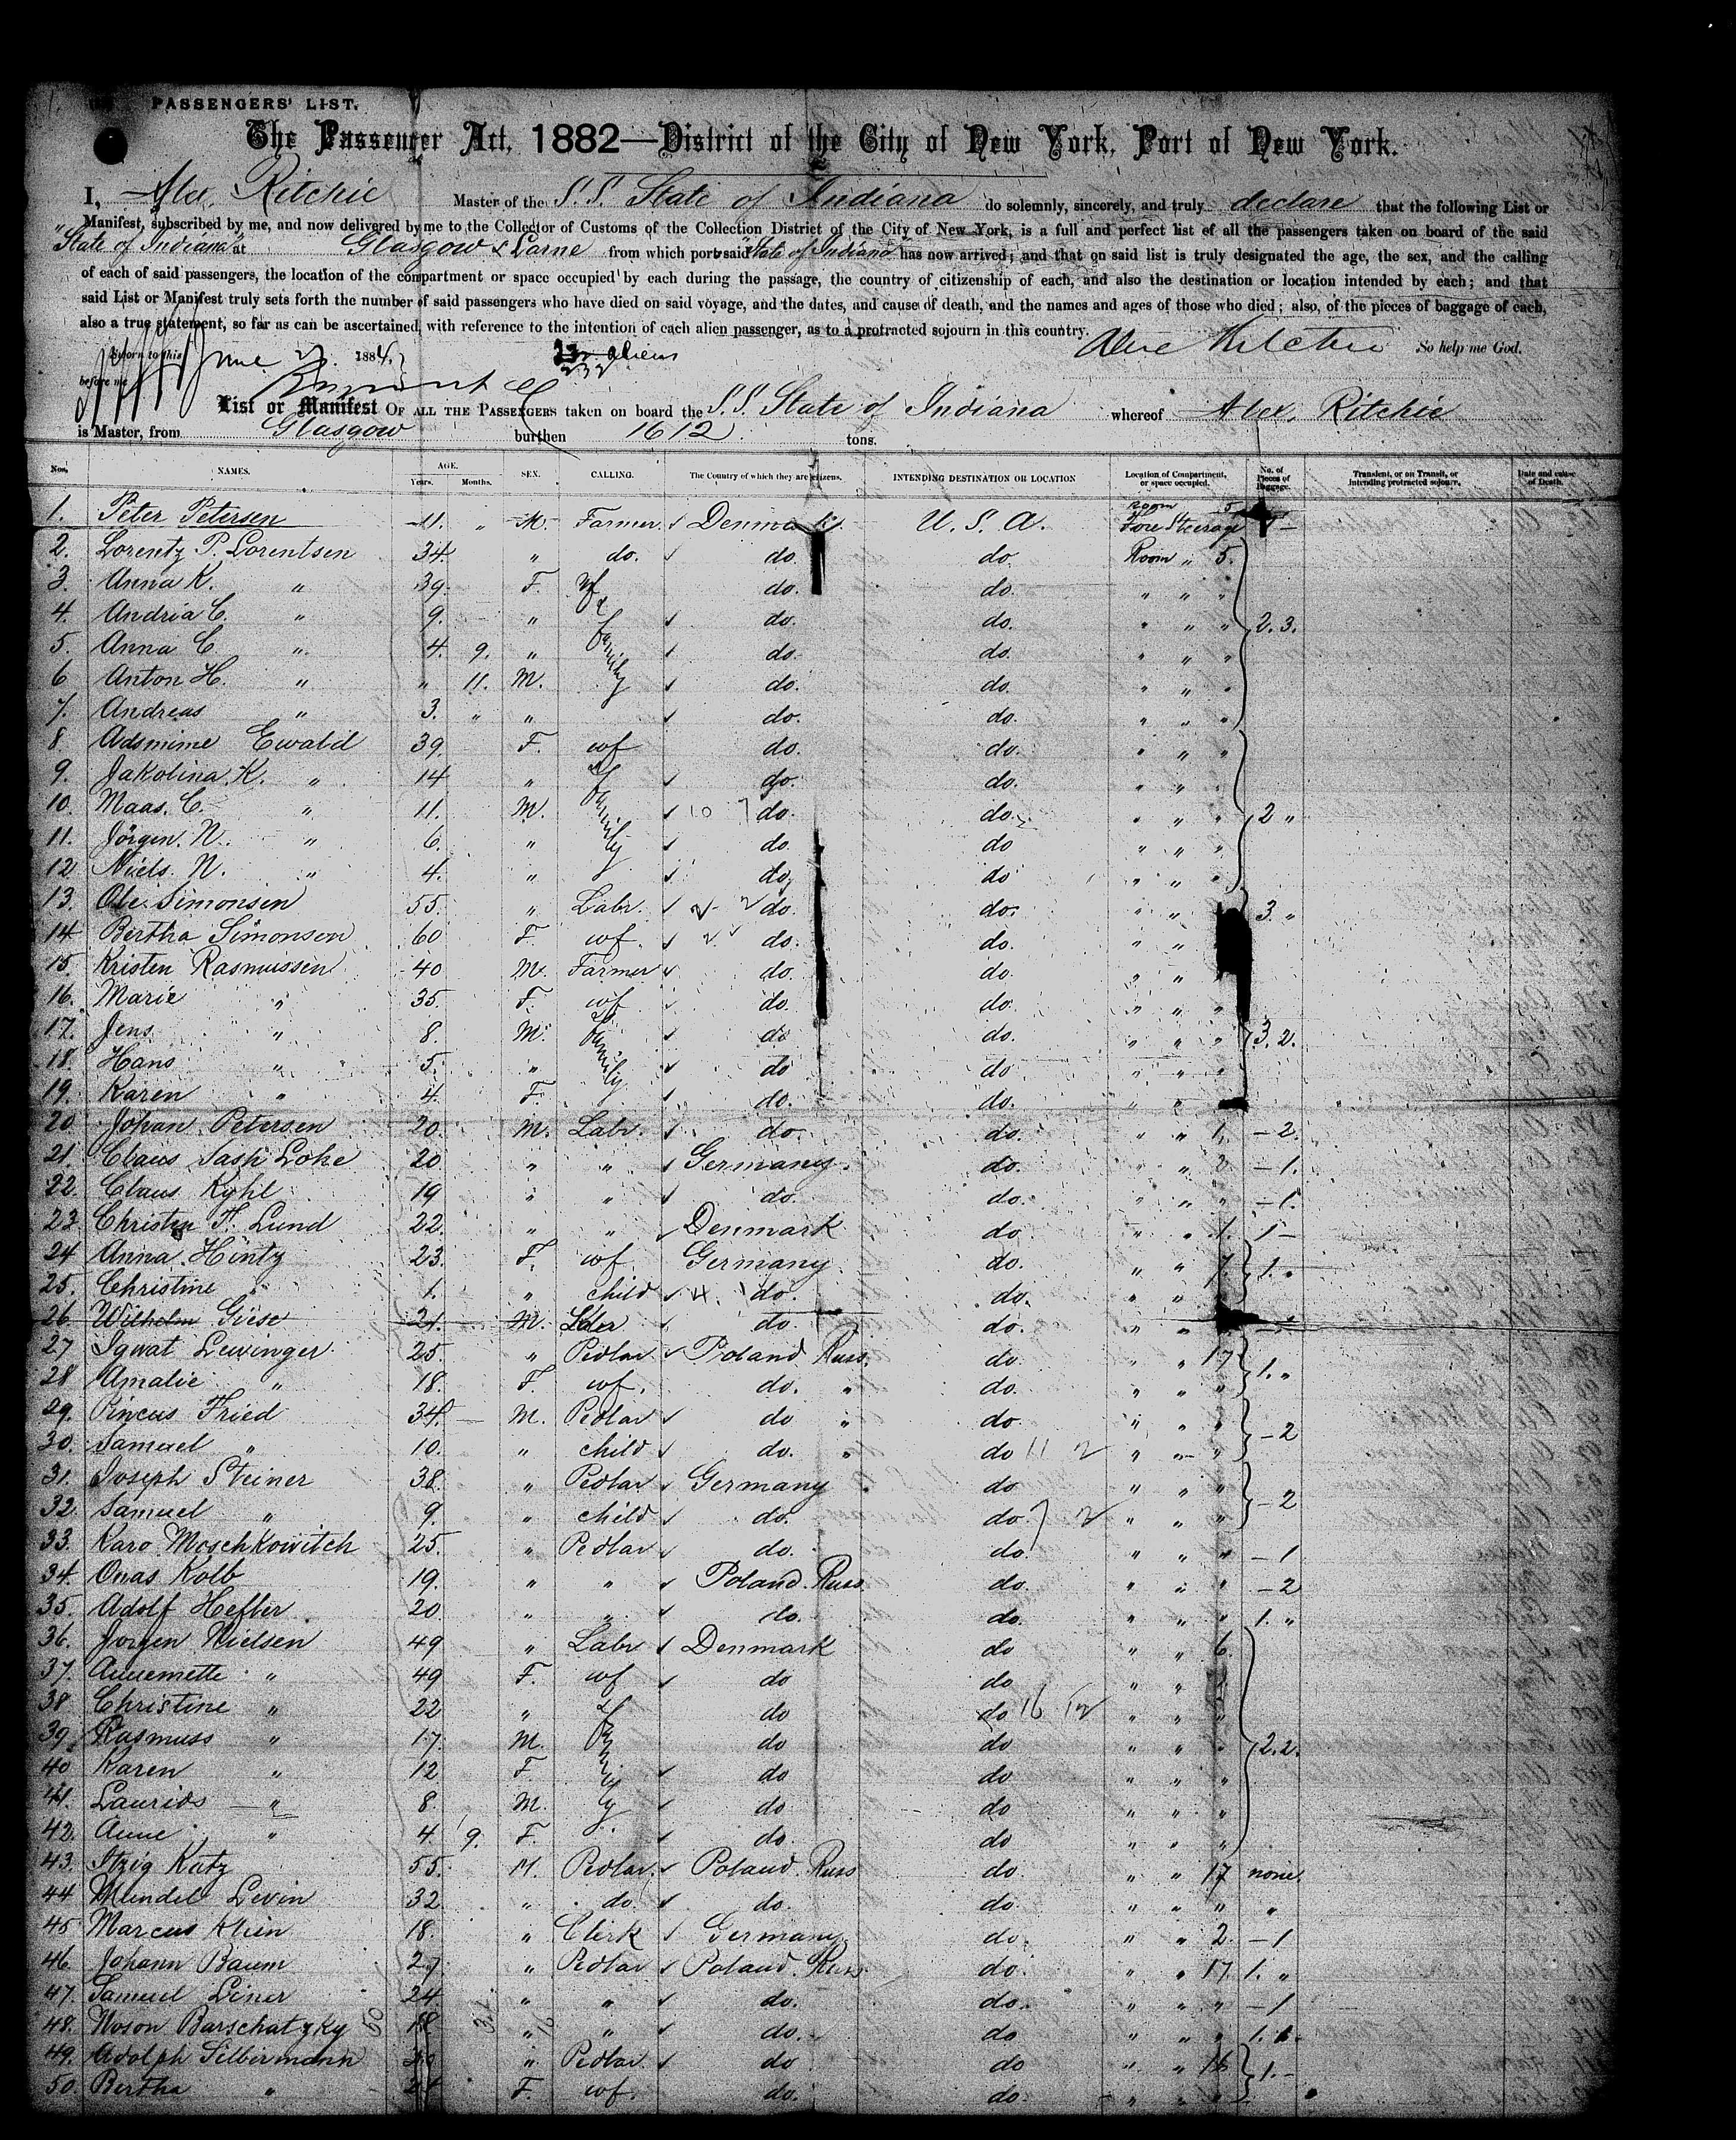 PASSENGERS' LIST.
The Passenger Act, 1882—District of the City of New York, Port of New York.
I, Alex. Ritchie Master of the S.S. State of Indiana do solemnly, sincerely, and truly declare that the following List or
Manifest, subscribed by me, and now delivered by me to the Collector of Customs of the Collection District of the City of New York, is a full and perfect list of all the passengers taken on board of the said
"State of Indiana" at Glasgow & Larne from which port said "State of Indiana" has now arrived; and that on said list is truly designated the age, the sex, and the calling
of each of said passengers, the location of the compartment or space occupied by each during the passage, the country of citizenship of each, and also the destination or location intended by each; and that
said List or Manifest truly sets forth the number of said passengers who have died on said voyage, and the dates, and cause of death, and the names and ages of those who died; also, of the pieces of baggage of each,
also a true statement, so far as can be ascertained, with reference to the intention of each alien passenger, as to a protracted sojourn in this country.
Alex Ritchie So help me God.
Sworn to this June 1884
before me
232 aliens
List or Manifest OF ALL THE PASSENGERS taken on board the S.S. State of Indiana whereof Alex. Ritchie
is Master, from Glasgow burthen 1612 tons.
Nos. NAMES. AGE. Years. Months. SEX. CALLING. The Country of which they are citizens. INTENDING DESTINATION OR LOCATION Location of Compartment, or space occupied. No. of Pieces of Baggage. Transient, or on Transit, or intending protracted sojourn. Date and cause of Death.
1. Peter Petersen 11. " M. Farmer Denmark U.S.A. Room 5 Fore Steerage 1 —
2. Lorentz P. Lorentsen 34. " do. do. do. Room " 5.
3. Anna K. " 39. F. wf do. do. " " "
4. Andria C. " 9. " & family do. do. " " " 2.3.
5. Anna C. " 4. 9. " do. do. " " "
6 Anton H. " " 11. M. do. do. " " "
7. Andreas " 3. " " do. do. " " "
8. Adsmime Ewald 39. F. wf do. do. " " "
9. Jakolina K. " 14 " & family do. do. " "
10. Maas. C. " 11. M. 10 do. do. " " " 2 "
11. Jörgen. N. " 6. " do. do " " "
12 Niels. N. " 4. " do. do " " "
13. Ole Simonsen 55. " Labr. do. do. " " 3. "
14 Bertha Simonsen 60 F. wf. do. do. " "
15. Kristen Rasmussen 40 M. Farmer do. do. " "
16. Marie " 35. F. wf do. do. " " "
17. Jens " 8. M. & family do do. " " " 3.2.
18. Hans " 5. " do do " " "
19. Karen " 4. F. do. do. " "
20 Johan Petersen 20. M. Labr. do. do. " " 1. — 2.
21. Claus Jasp Lohe 20 " " Germany. do. " " 2 — 1.
22. Claus Kyhl 19 " " do. do. " " " — 1.
23 Christen T. Lund 22. " " Denmark do " " 1. 1 —
24 Anna Hintz 23. F. wf. Germany. do. " " 7. 1. "
25. Christine " 1. " child do. do. " " "
26 Wilhelm Giese 21. M. do. do. " "
27 Igwat Lewinger 25. " Pedlar Poland Russ. do. " " 17 1. "
28 Amalie " 18. F. wf. do. " do. " " "
29. Pincus Fried 34. M. Pedlar do " do. " " " — 2
30. Samuel " 10. " child do. " do 11 2 " " "
31. Joseph Steiner 38. " Pedlar Germany do " " " — 2
32. Samuel " 9. " child do. do. 7 2 " " "
33. Karo Moschkowitch 25. " Pedlar do. do. " " " — 1
34. Onas Kolb 19. " " Poland Russ do. " " " — 2
35. Adolf Hefler 20 " " do. do. " " " 1. "
36. Jorgen Nielsen 49 " Labr Denmark do " " 6.
37. Annemette " 49 F. wf do do " "
38 Christine " 22 " & family do do 16 12 " "
39 Rasmuss " 17. M. do do " " " 2.2.
40 Karen " 12 F do do " " "
41. Laurids " 8. M. do do " " "
42. Anne " 4 9. F. do. do " " "
43. Itzig Katz 55. M. Pedlar. Poland Russ do " " 17 none.
44 Mendel Levin 32 " do do. do. " " " "
45 Marcus Klein 18. " Clerk Germany. do. " " 2. — 1
46. Johann Baum 27 " Pedlar Poland Russ. do. " " 17. 1. "
47. Samuel Liner 24. " " do. do. " " " — 1
48. Noson Barschatzky 50 18 " " do. do " " " 1.
49. Adolph Silbermann " Pedlar. do do " " 16 1. —
50. Bertha " F. wf. do. do. " " "